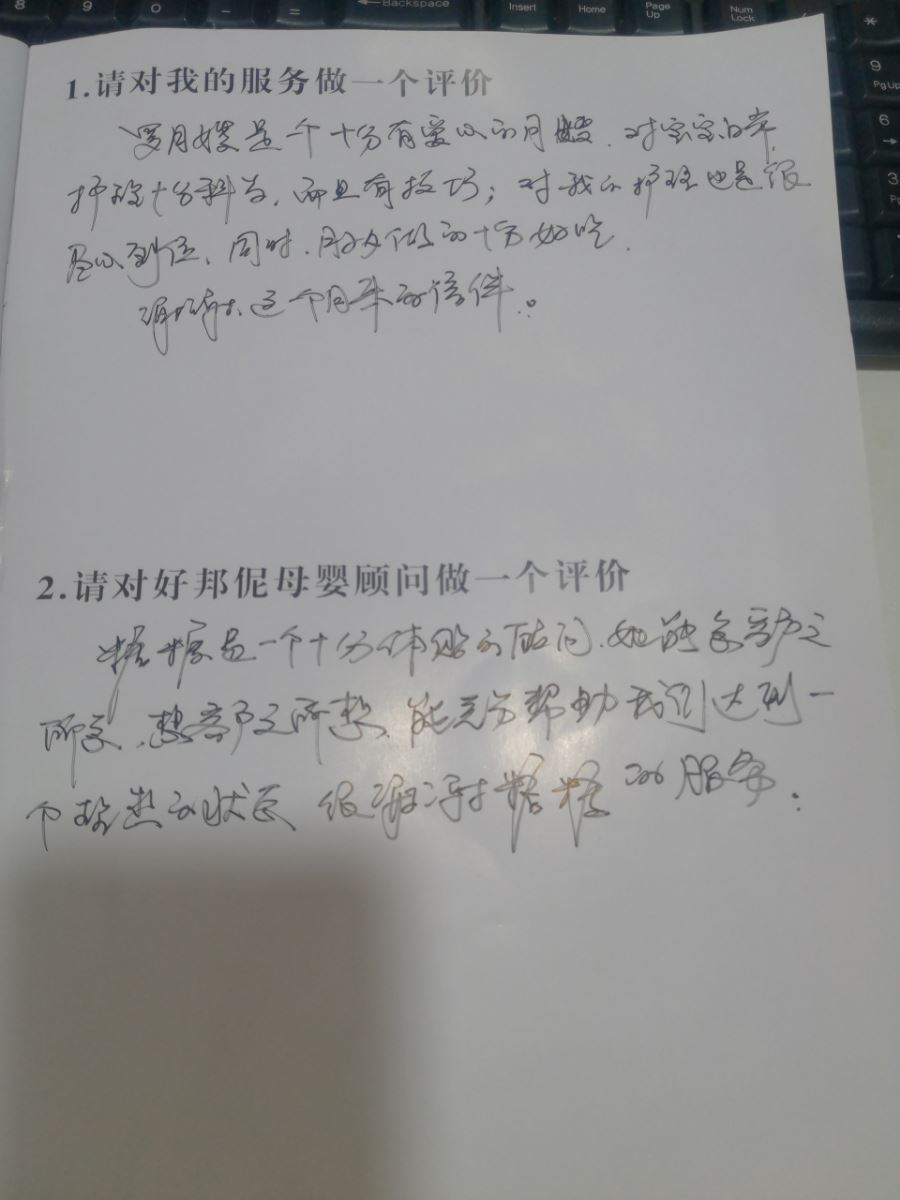 8 9 0 - = ←Backspace Insert Home Page Up Num Lock *
9 PgUp
6 →
3
1.请对我的服务做一个评价
罗月嫂是一个十分有爱心的月嫂,对宝宝日常
护理十分科学,而且有技巧;对我的护理也是很
尽心到位、同时,月子餐做的十分好吃.
谢谢这个月来的陪伴。
2.请对好邦伲母婴顾问做一个评价
糖糖是一个十分体贴的顾问,她能急客户之
所急,想客户之所想,能充分帮助我们达到一
个理想的状态 很谢谢糖糖的服务.